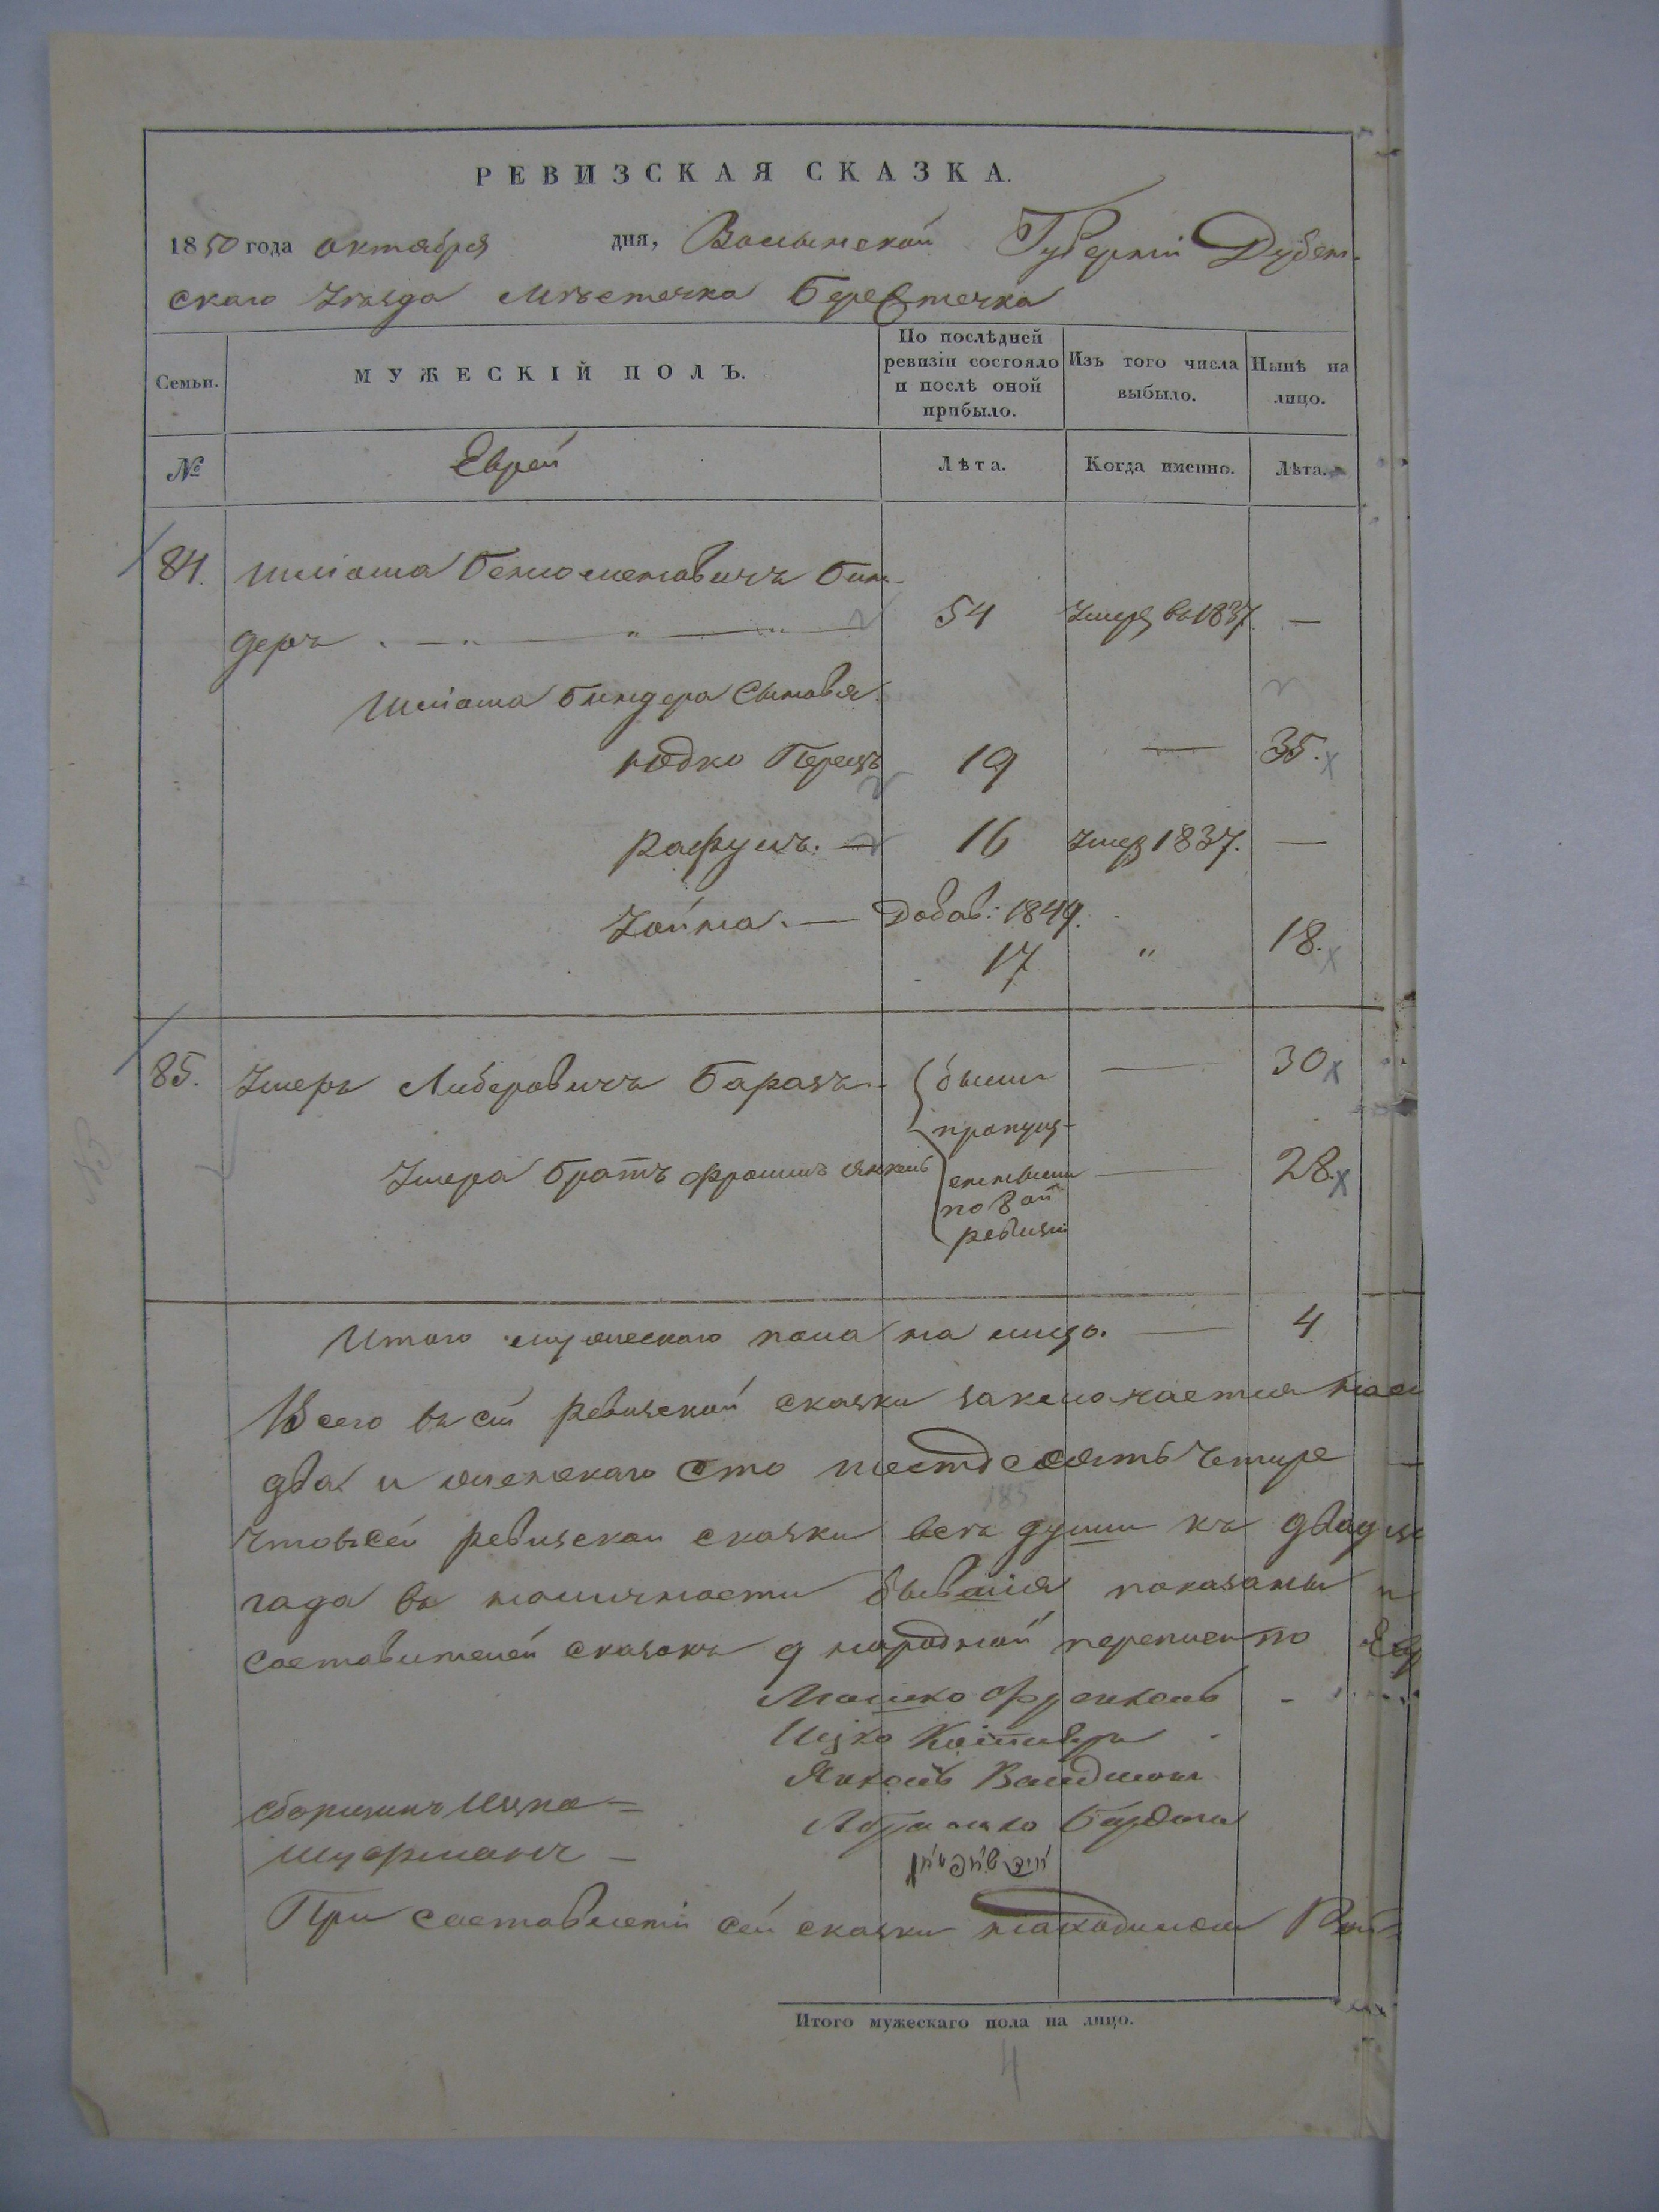 РЕВИЗСКАЯ СКАЗКА.
1850 года октября дня, Волынской Губерніи Дубен-
скаго Уезда Мѣстечка Берестечка
Семьи.
МУЖЕСКІЙ ПОЛЪ.
По послѣдней ревизіи состояло и послѣ оной прибыло.
Изъ того числа выбыло.
Нынѣ на лицо.
№
Еврей
Лѣта.
Когда именно.
Лѣта.
84. Шліома Беніоменовичъ Бин-
деръ 54 Умеръ въ 1837. —
Шліома Биндера Сыновья
Юдко Перецъ 19 — 35.
Рафулъ. — 16 Умер 1837. —
Добав: 1849.
17 " 18.
85. Умеръ Либеровичъ Баразъ - 30
были
пропущ-
Умера братъ Фроимъ Янкель 28.
енными
по 8 ой
ревизіи
Итого мужескаго пола на лицо. — 4
Всего въ сій ревизской сказки заключается
два и женскаго Сто шестдесять четире
185
что въ сей ревизской сказки всѣ души къ двадц
года въ наличности бывшія показаны
составителей сказокъ о народной переписи по
Мошко Френкель
Ицко
Янкель
сборщикъ Ицко —
Абрамко
Шуфманъ —
При составленіи сей сказки находился
Итого мужескаго пола на лицо.
4